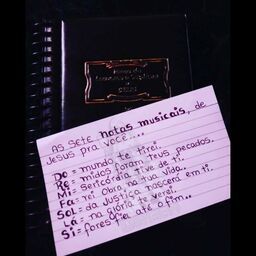 As sete notas musicais, de
Jesus pra você....
Do = mundo te tirei.
Re = midos foram teus pecados.
Mi = sericórdia tive de ti.
Fa = rei obra na tua vida..
SOL = da justiça nascerá em ti.
Lá = na glória te verei.
Si = fores fiel até o fim..